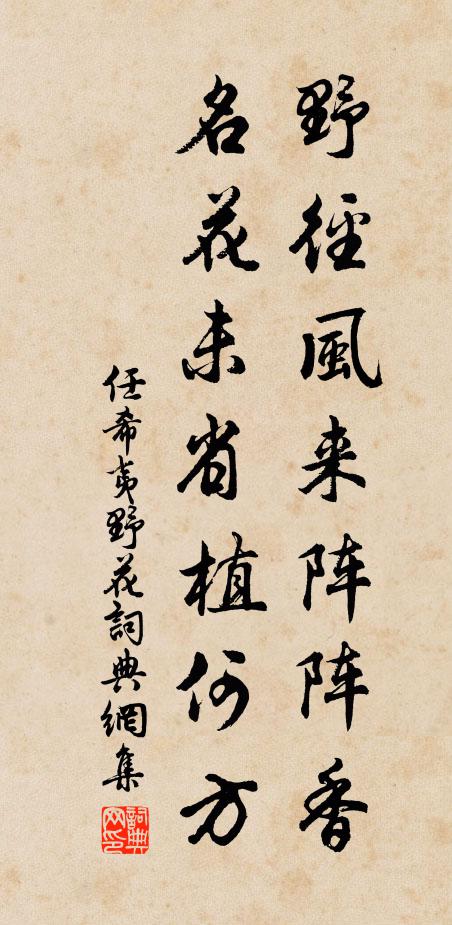 野徑風来阵阵香
名花未省植何方
任希夷野花詞典網集
詞典网印